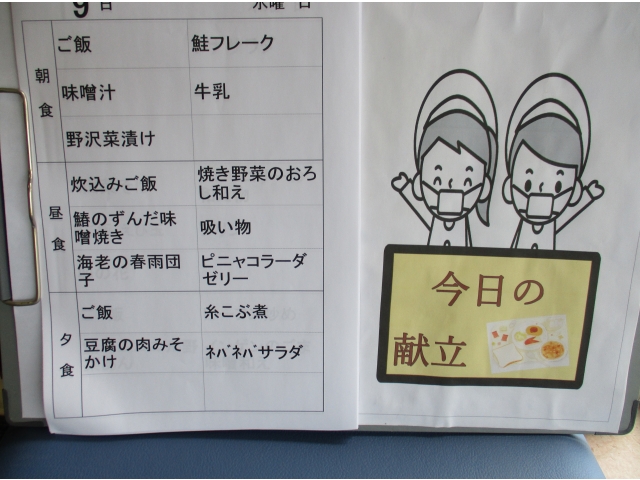 9日 水曜 日
朝食
ご飯 鮭フレーク
味噌汁 牛乳
野沢菜漬け
昼食
炊込みご飯 焼き野菜のおろ
し和え
鰆のずんだ味
噌焼き 吸い物
海老の春雨団
子 ピニャコラーダ
ゼリー
夕食
ご飯 糸こぶ煮
豆腐の肉みそ
かけ ﾈﾊﾞﾈﾊﾞサラダ
今日の
献立